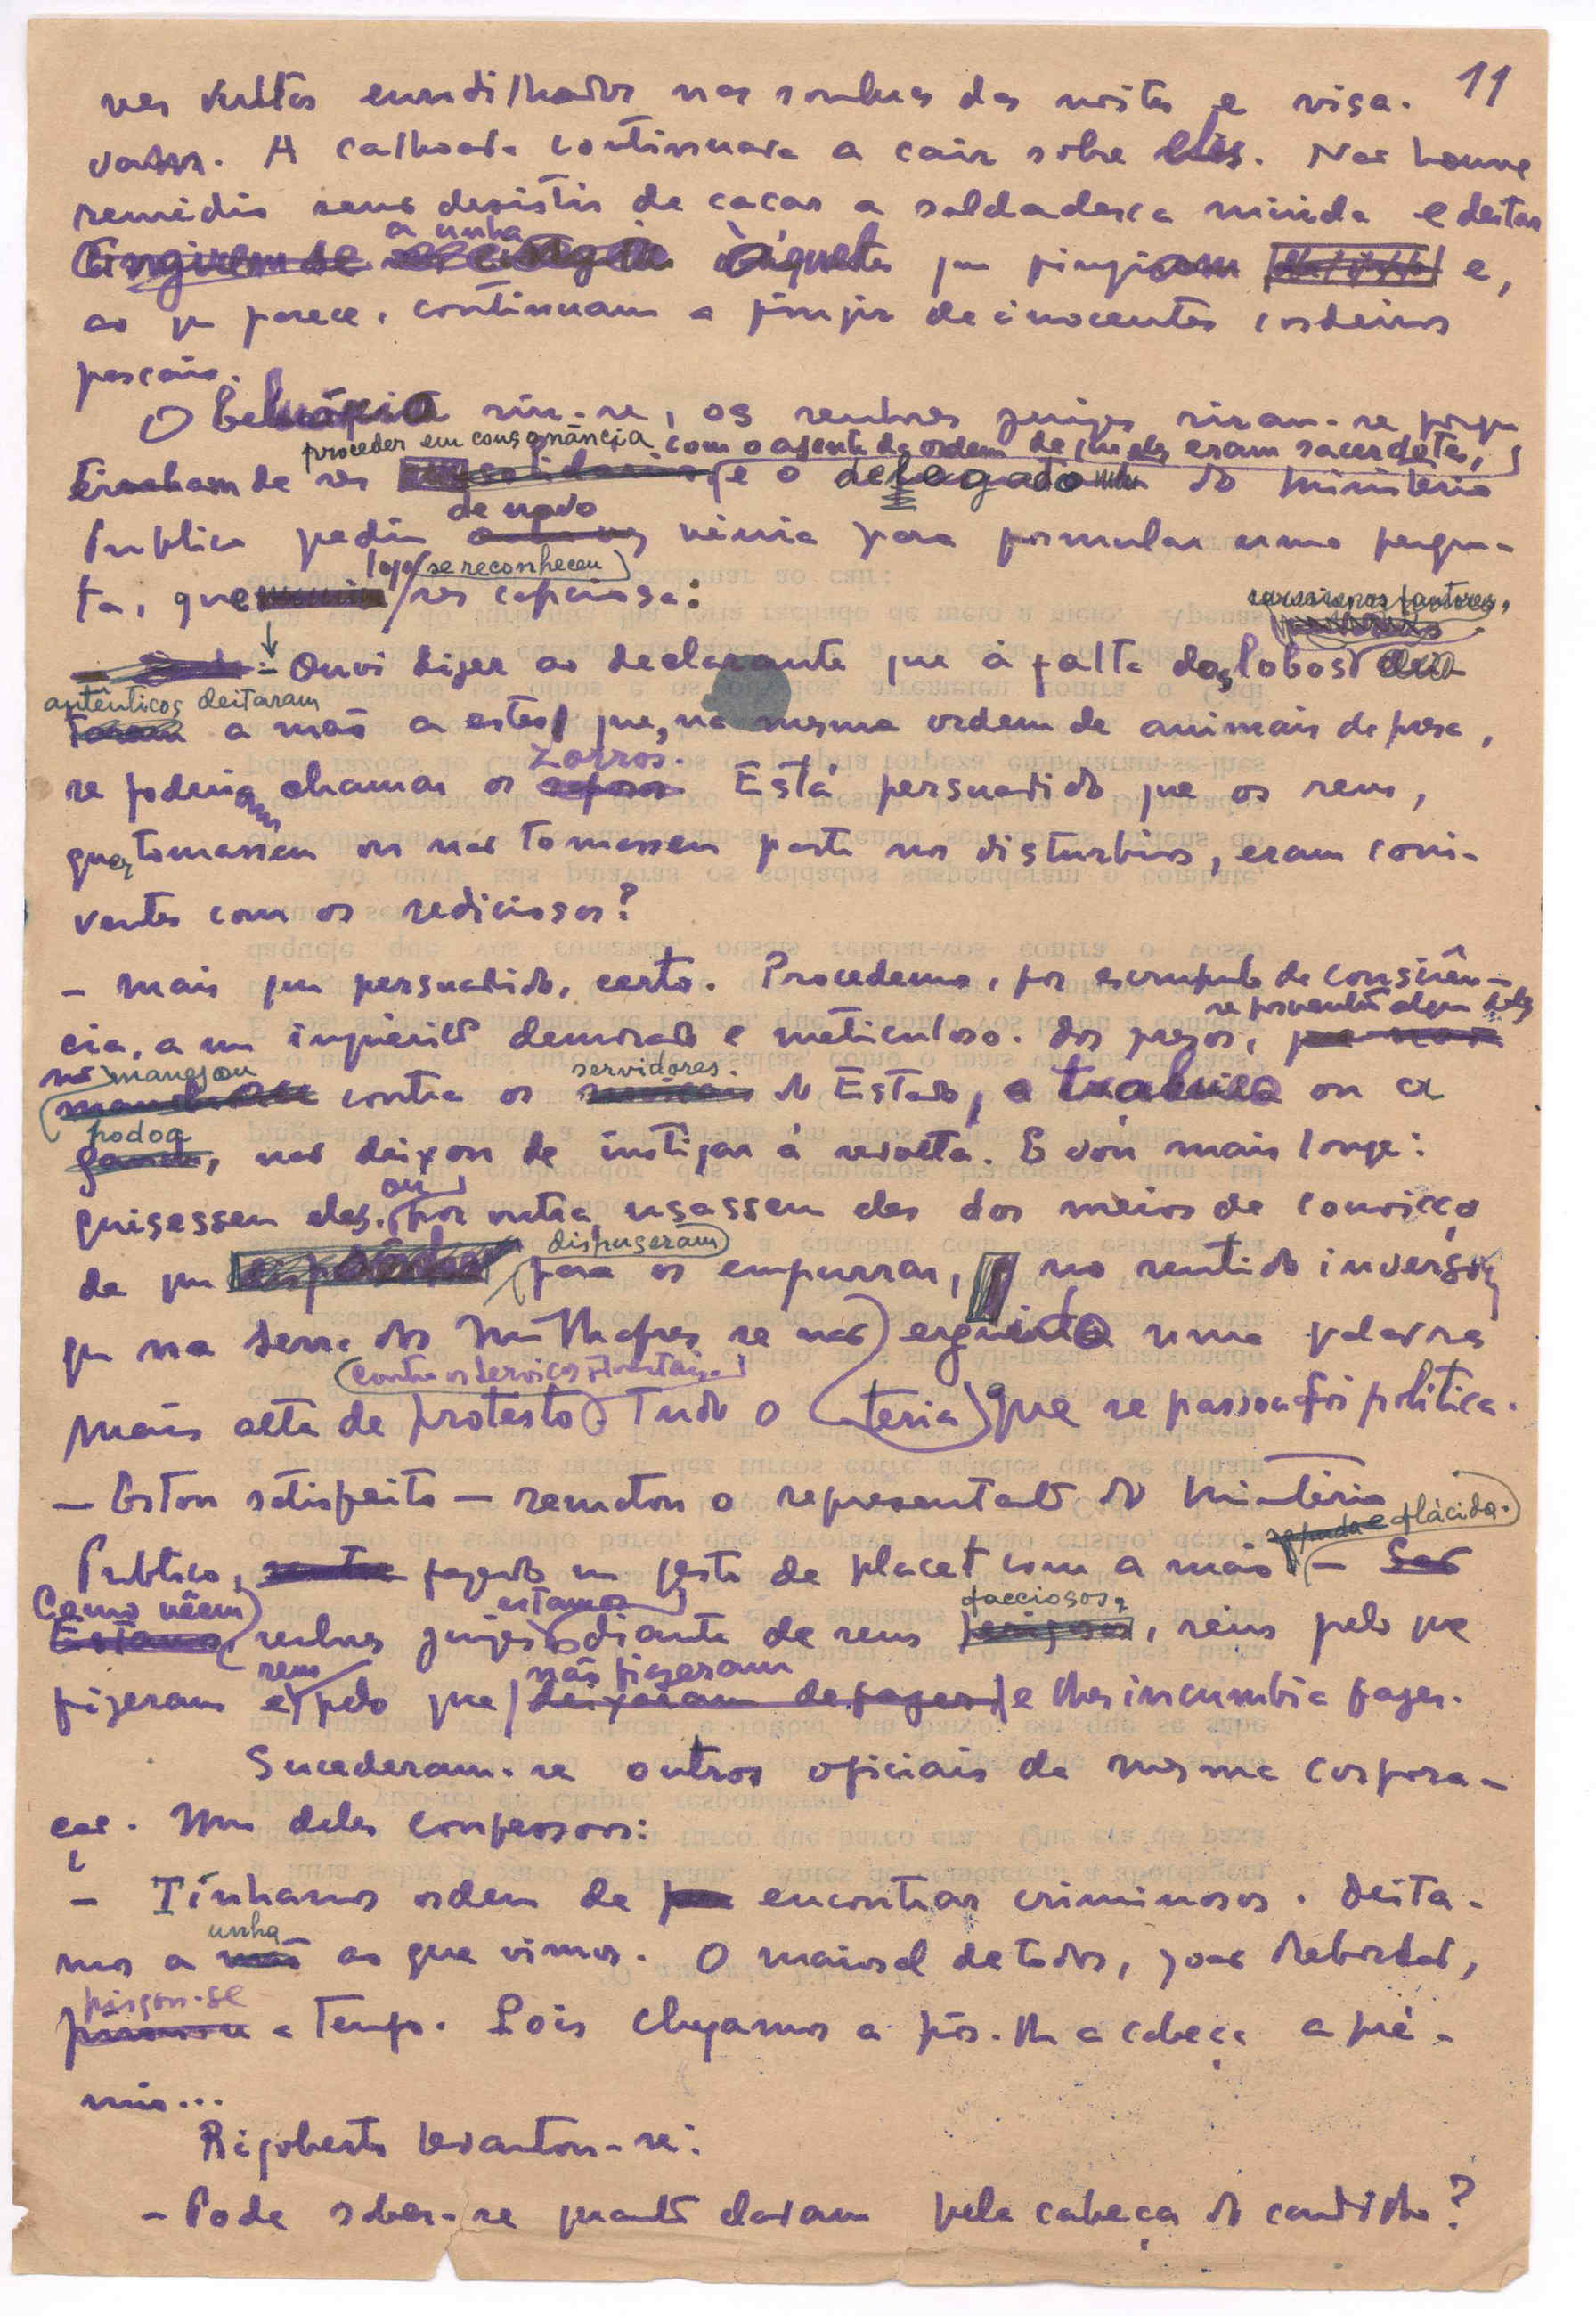 11
nes vultos encodilhados nas sombras da noite e visa-
vam. A calhoada continuava a cair sobre eles. Não houve
remédio senão desistir de caçar a soldadesca miúda e deitar
a unha
cingirem-se àqueles que fingiam e,
ao que parece, continuam a fingir de inocentes cordeiros
pascais.
O riu-se, os senhores juizes riram-se porque
proceder em consonância com o agente da ordem de que eles eram sacerdotes,
tinham de e o delegado do Ministério
de novo
Publico pediu vénia para formular uma pergun-
logo se reconheceu
ta, que ser capciosa:
- Ouvi dizer ao declarante que à falta dos lobos
autênticos deitaram
a mão a estes que, na mesma ordem de animais de presa,
zorros.
se poderiam chamar os Está persuadido que os reus,
quer tomassem ou não tomassem parte nos disturbios, eram coni-
ventes com os sediciosos?
- Mais que persuadido, certo. Procedemos, por escrupulo de consciên-
se porventura algum deles
cia, a um inquérito demorado e meticuloso. Dos presos,
não manejou servidores
contra os do Estado, a ou a
podoa
, não deixou de instigar à revolta. E vou mais longe:
ou
quisessem eles, por outra, usassem eles dos meios de convicção
dispuseram
de que para os empurrar, no sentido inverso,
que na Serra dos Milhafres se não erguido uma palavra
contra os serviços Florestais
mais alta de protesto. Tudo o teria que se passou foi politica.
- Estou satisfeito - rematou o representante do Ministério
e plácida.
Publico, fazendo um gesto de placet com a mão -
Como vêem estamos facciosos,
senhores juizes diante de reus , réus pelo que
reus não fizeram
fizeram e pelo que e lhes incumbia fazer.
Sucederam-se outros oficiais da mesma corpora-
ção. Um deles confessou:
- Tínhamos ordem de encontrar criminosos. Deita-
unha
mos a ao que vimos. O maioral de todos, João Rebordão,
pisgou-se
a tempo. Pois chegamos a pôr-lhe a cabeça a pré-
mio...
Rigoberto levantou-se:
- Pode saber-se quanto davam pela cabeça do candidho?